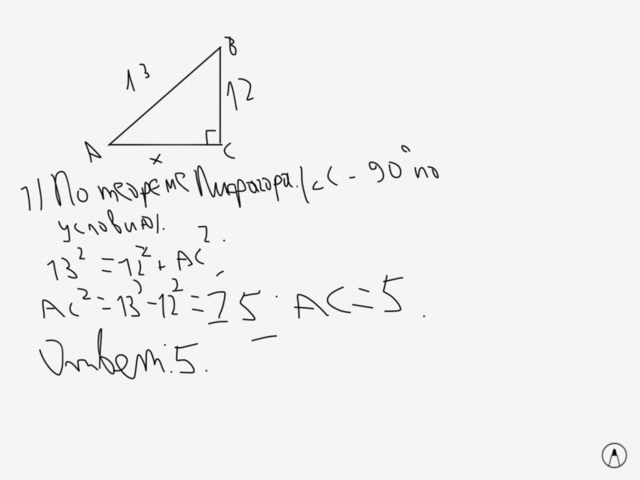 B
13
12
A
x
C
1) По теореме Пифагора. (∠C - 90° по
условию).
13² = 12² + AC².
AC² = 13² - 12² = 25. AC = 5.
Ответ: 5.